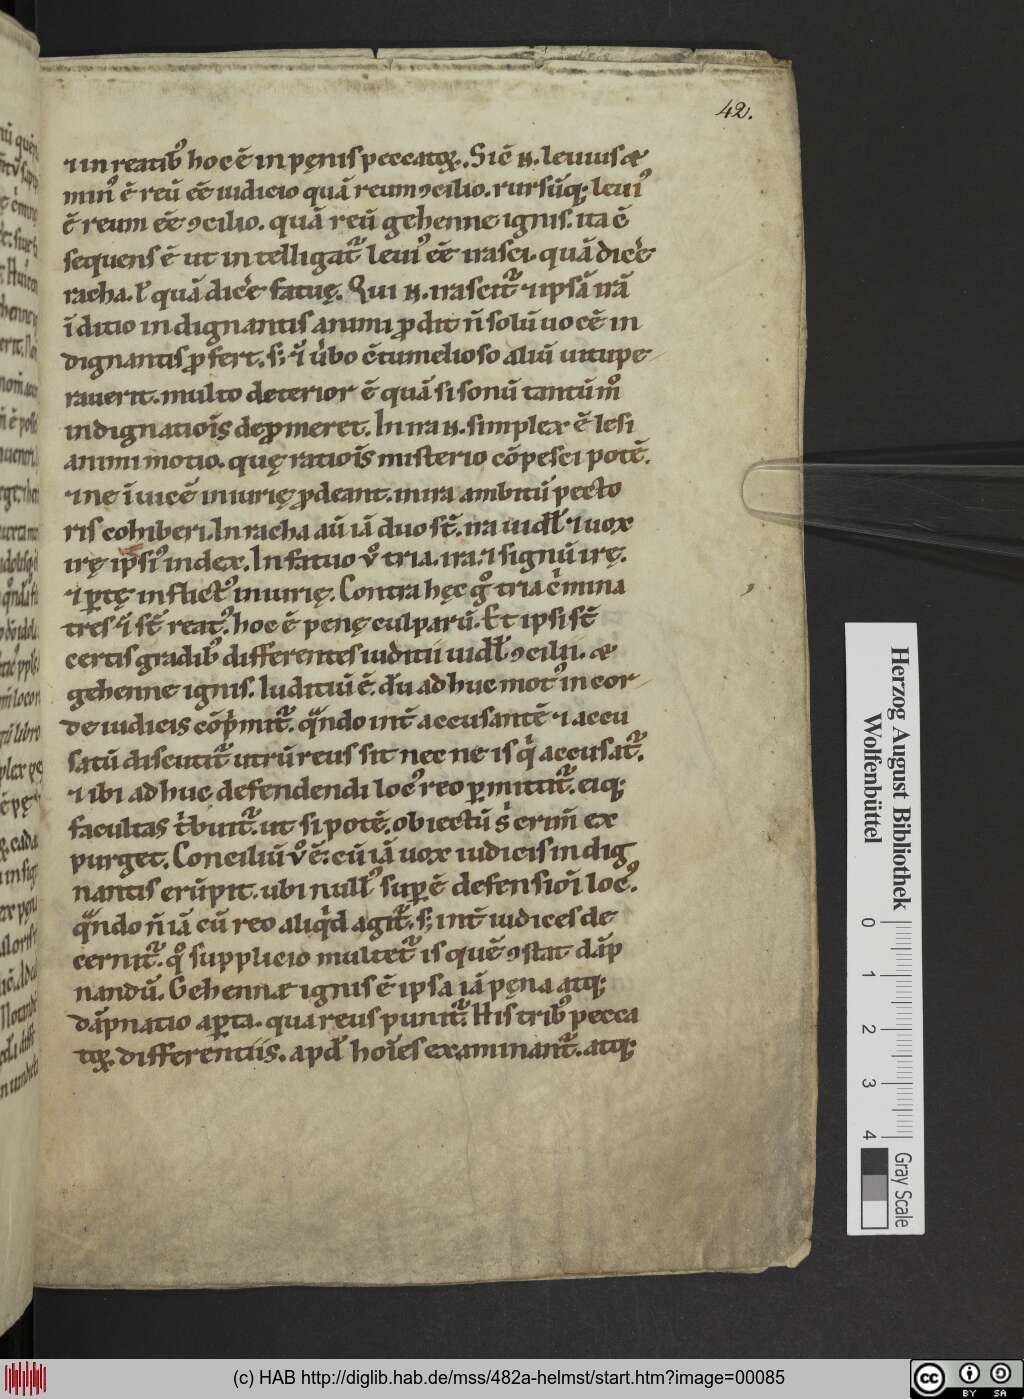 42.
⁊ in reatib᷒ hoc ē in pęnis peccatoꝝ. Sic̄ .n. leuius &
min᷒ ē reū eē iudicio quā reum ꝯcilio. rursūq; leui᷒
ē reum eē ꝯcilio. quā reū gehenne ignis. ita ē
sequens ē ut intelligat᷑ leui᷒ eē irasci. quā dic̄e
racha. l̄ quā dic̄e fatuę. Qui .n. irascit᷑ ⁊ ipsā irā
ī ditio indignantis animi ꝓdit n̄ solū uocē in
dignantis ꝓfert. s; ⁊ī u̾bo ꝯtumelioso aliū uitupe
rauerit. multo deterior ē quā si sonū tantūm̊
indignatiōis deꝓmeret. In ira .n. simplex ē lesi
animi motio. quę ratiōis misterio cōpesci potē.
⁊ ne ī uicē iniurię ꝓdeant. intra ambitū pecto
ris cohiberi. In racha aū iā duo st̄. ira uidł ⁊ uox
irę ipsi᷒ index. In fatuo v̊ tria. ira. ⁊ signū irę.
⁊ ꝑtę inflict᷒ iniurię. Contra hęc g̊ tria c̾mina
tres ⁊ī st̄ reat᷒. hoc ē penę culparū. Et ipsi st̄
certis gradib᷒ differentes iuditii uidł ꝯcilii. &
gehenne ignis. Iuditiū ē. dū adhuc mot᷒ in cor
de iudicis cōp̾mit᷑. qᷓndo int̄ accusantē ⁊ accu
satū discutit᷑ utrū reus sit nec ne is qͥ accusat᷑.
⁊ ibi adhuc defendendi loc᷒ reo ꝑmittit᷑. eiq;
facultas tͥbuit᷑. ut si potē. obiectū s̾ crim̄ ex
purget. Conciliū v̊ ē: cū iā uox iudicis indig
nantis erūpit. ubi null᷒ suꝑē defensiōi loc᷒.
qᷓndo n̄ iā cū reo aliqͥd agit᷑. s; int̄ iudices de
cernit᷑. q̊ supplicio multet᷑ is quē ꝯstat dāp
nandū. Gehennæ ignis ē ipsa iā pęna atq;
dāpnatio aꝑta. qua reus punit᷑. His trib᷒ pecca
toꝝ differentiis. apđ hoīes examinant᷑. atq;
Herzog August Bibliothek
Wolfenbüttel
0 1 2 3 4
Gray Scale
(c) HAB http://diglib.hab.de/mss/482a-helmst/start.htm?image=00085
cc BY SA